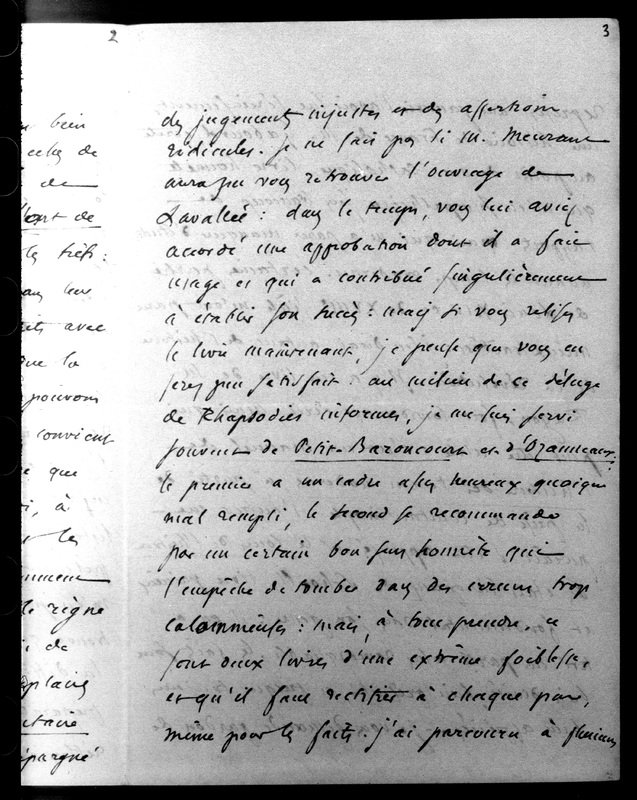 2
3
n bien
celle de
de
l'ont de
les traits :
dans leur
its avec
que la
pouvons
convient
e que
i, à
les
le règne
de
plais
itaire
épargné
des jugements injustes et des assertions
ridicules. je ne sais pas si M. Meurant
aura pu vous retrouver l'ouvrage de
Lavallée : dans le temps, vous lui aviez
accordé une approbation dont il a fait
usage et qui a contribué singulièrement
à établir son succès : mais si vous relisez
le livre maintenant, je pense que vous en
serez peu satisfait. au milieu de ce déluge
de Rhapsodies informes, je me suis servi
souvent de Petit-Baroncourt et d'Ozaneaux :
le premier a un cadre assez heureux quoique
mal rempli, le second se recommande
par un certain bon sens honnête qui
l'empêche de tomber dans des erreurs trop
calomnieuses : mais, à tout prendre, ce
sont deux livres d'une extrême foiblesse,
et qu'il faut rectifier à chaque pas,
même pour les faits. j'ai parcouru à plusieurs